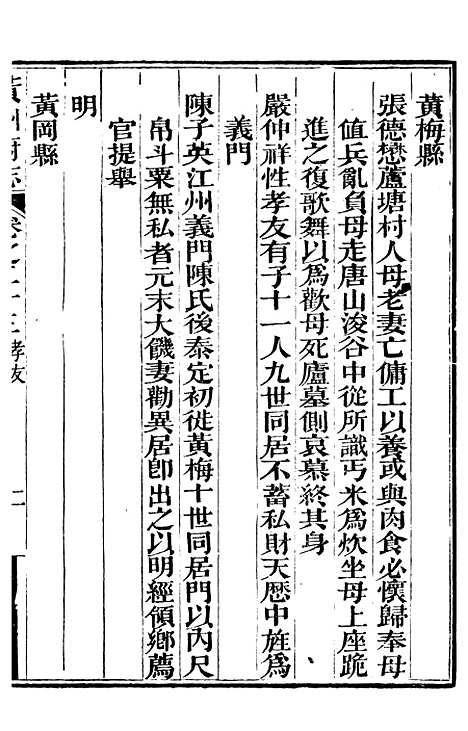 黃梅縣
張德懋蘆塘村人母老妻亡傭工以養或與肉食必懷歸奉母
值兵亂負母走唐山浚谷中從所識丐米爲炊坐母上座跪
進之復歌舞以爲歡母死廬墓側哀慕終其身
嚴仲祥性孝友有子十一人九世同居不蓄私財天歷中旌爲
義門
陳子英江州義門陳氏後泰定初徙黃梅十世同居門以內尺
帛斗粟無私者元末大饑妻勸異居卽出之以明經領鄉薦
官提舉
明
黃岡縣
黃州府志 卷之二十三 孝友 二